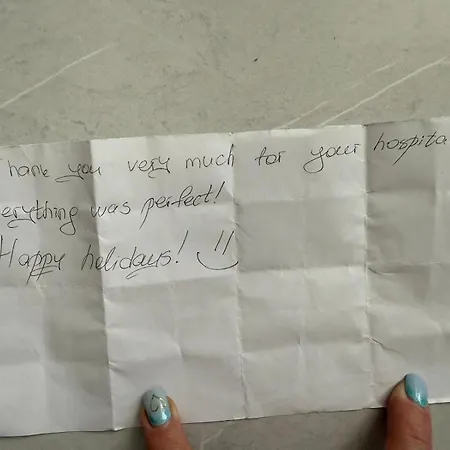 Thank you very much for your hospita
erything was perfect!
Happy helidays! :)